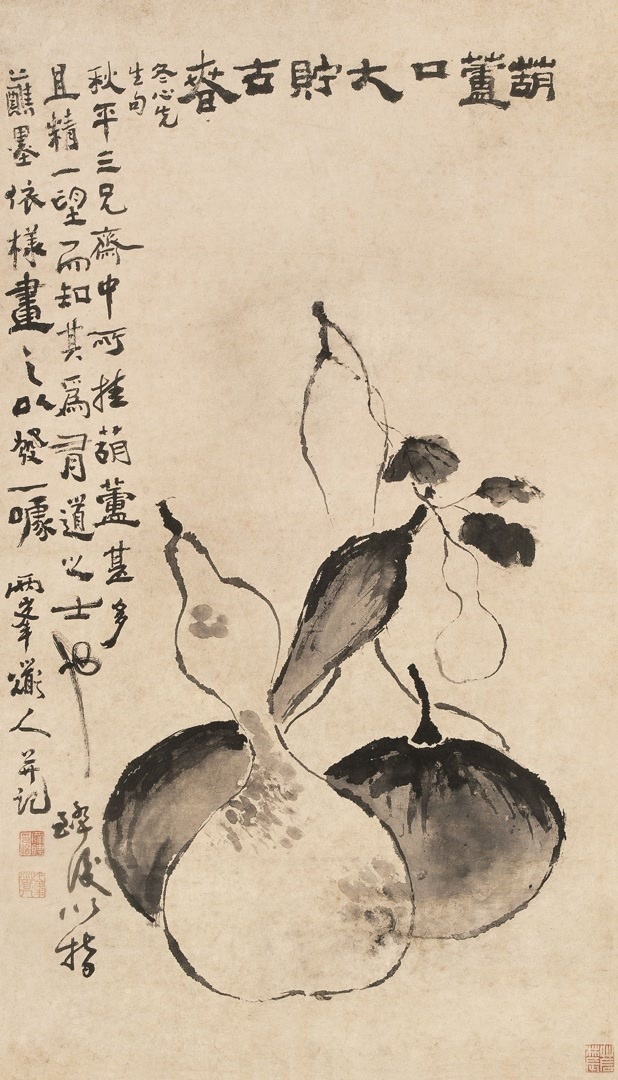 葫蘆口大貯古春
冬心先
生句
秋平三兄齋中所挂葫蘆甚多
且精一望而知其爲有道之士也
醉後以指
蘸墨依樣畫之以發一噱
兩峯道人并記